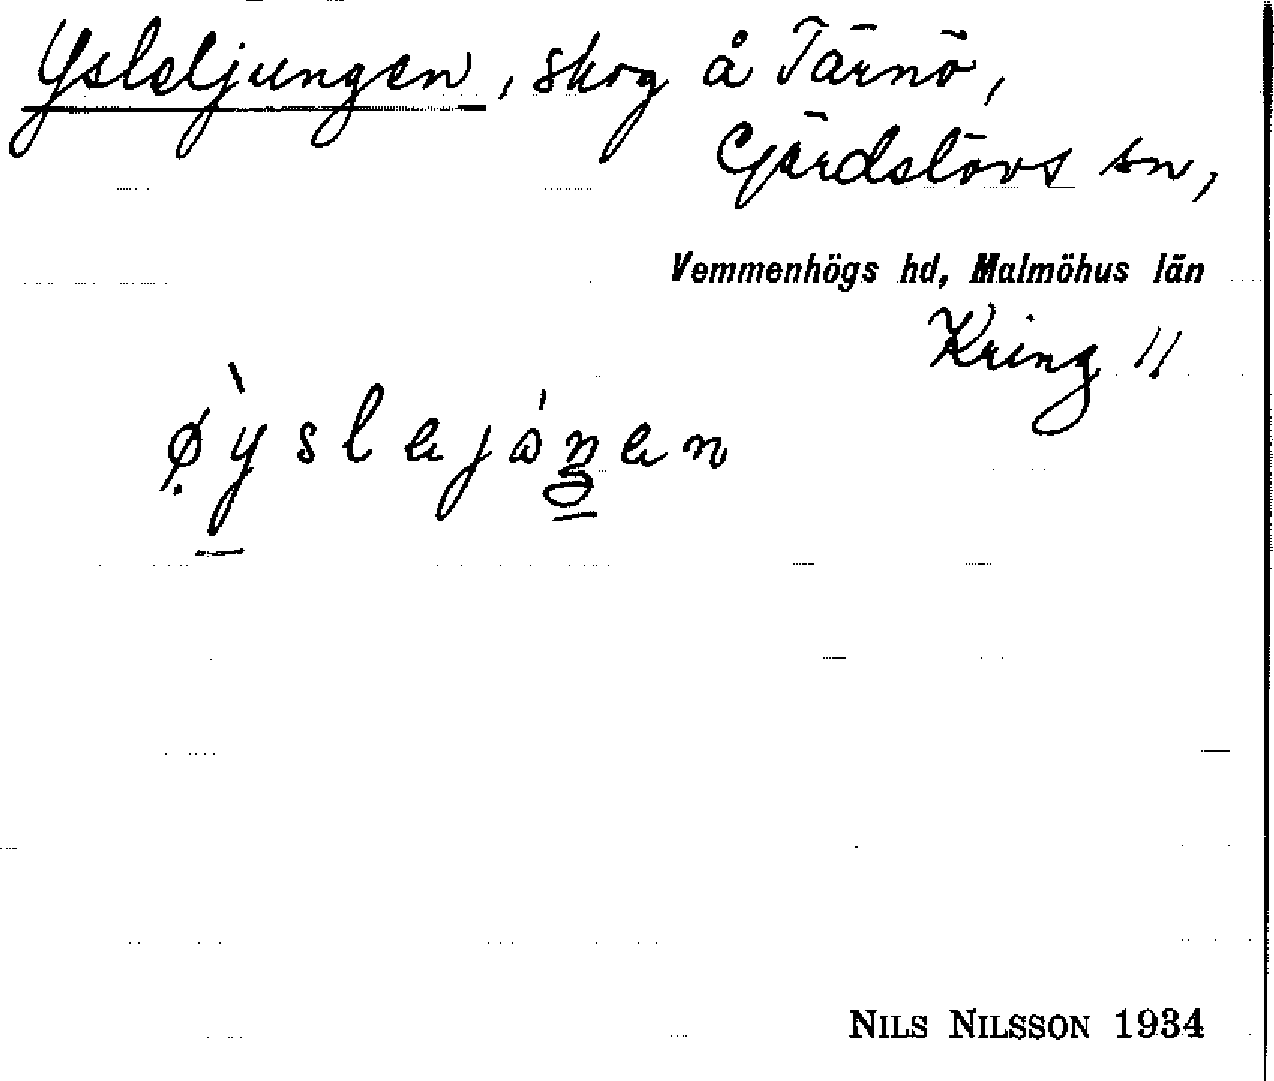 Ysleljungen, skog å Tärnö,
Gärdslövs sn,
Vemmenhögs hd, Malmöhus län
Kring 11
NILS NILSSON 1934